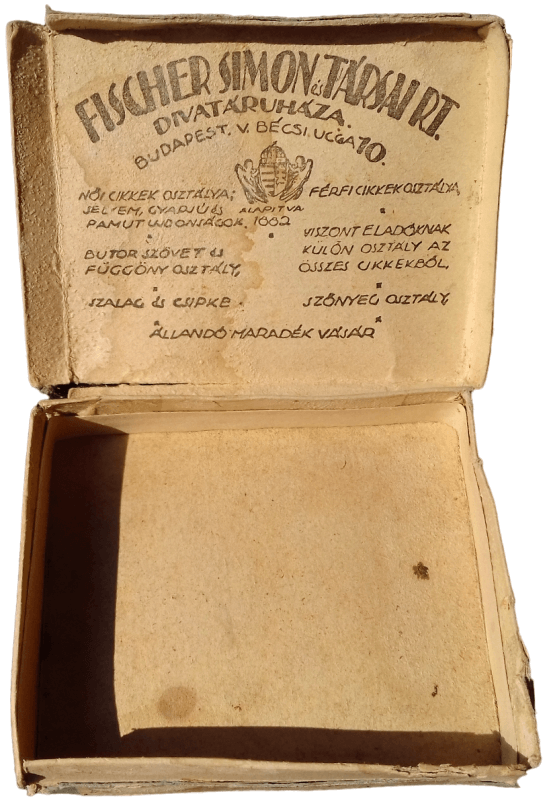 FISCHER SIMON és TÁRSAI RT.
DIVATÁRUHÁZA.
BUDAPEST, V. BÉCSI, UCCA 10.
NŐI CIKKEK OSZTÁLYA;
SELYEM, GYAPJÚ és
PAMUT UJDONSÁGOK.
ALAPITVA
1882
FÉRFI CIKKEK OSZTÁLYA,
VISZONT ELADÓKNAK
KÜLÖN OSZTÁLY AZ
ÖSSZES CIKKEKBŐL,
BUTOR SZÖVET és
FÜGGÖNY OSZTÁLY,
SZALAG és CSIPKE
SZŐNYEG OSZTÁLY,
ÁLLANDÓ MARADÉK VÁSÁR